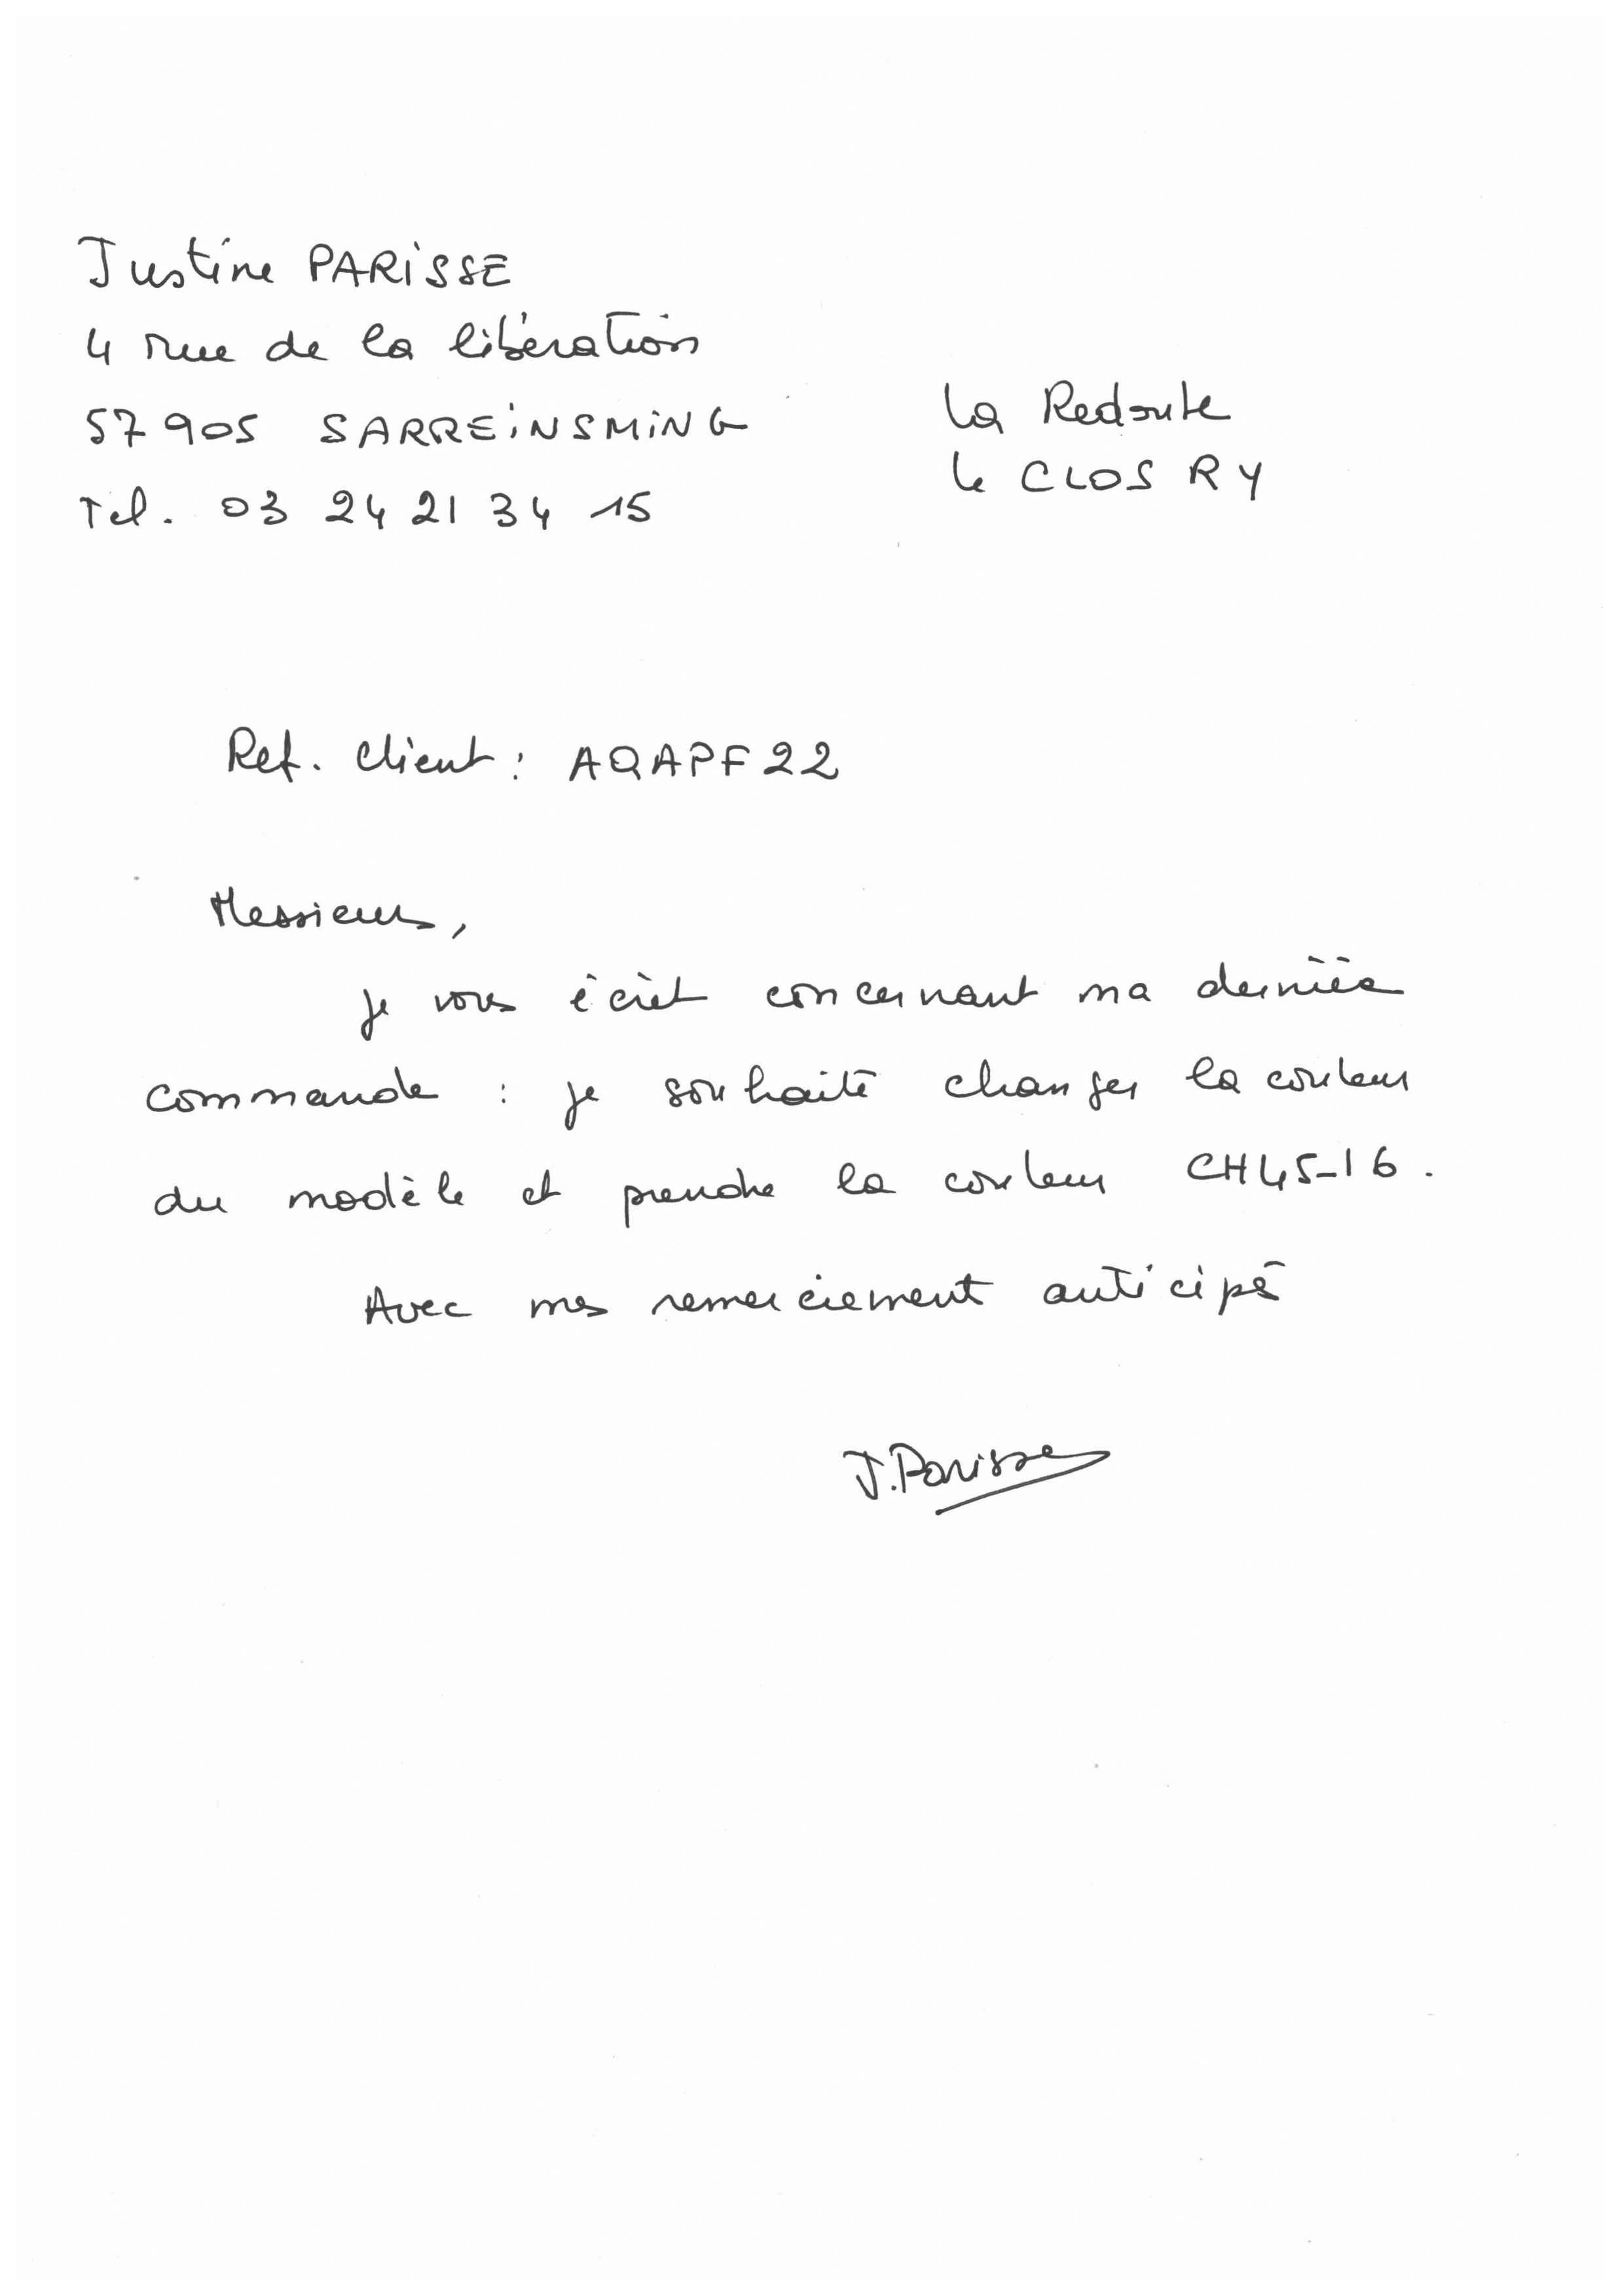 Justine PARISSE
4 rue de la libération
57905 SARREINSMING
Tel. 03 24 21 34 15
La Redoute
Le CLOS RY
Ref. Client : AQAPF22
Messieurs,
Je vous écrit concernant ma dernière
commande : je souhaite changer la couleur
du modèle et prendre la couleur CH45-16.
Avec mes remerciement anticipé
J. Parisse